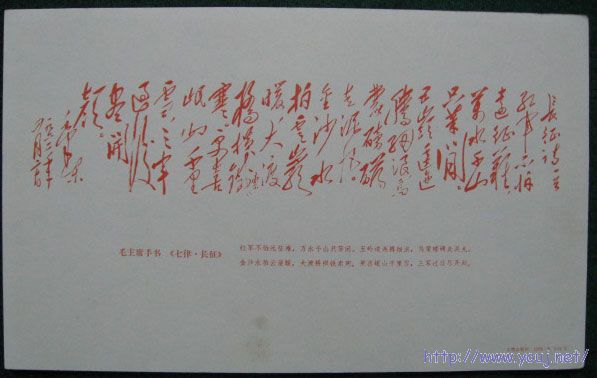 长征詩一首
红军不怕
远征難
萬水千山
只等闲
五嶺逶迤
腾细浪烏
蒙磅礴
走泥丸
金沙水
拍雲崖
暖大渡
橋横铁索
寒更喜
岷山千里
雪三军
過後
盡開
颜
毛澤東
毛主席手书《七律·长征》
红军不怕远征难，万水千山只等闲。五岭逶迤腾细浪，乌蒙磅礴走泥丸。
金沙水拍云崖暖，大渡桥横铁索寒。更喜岷山千里雪，三军过后尽开颜。
http://www.youj.net/